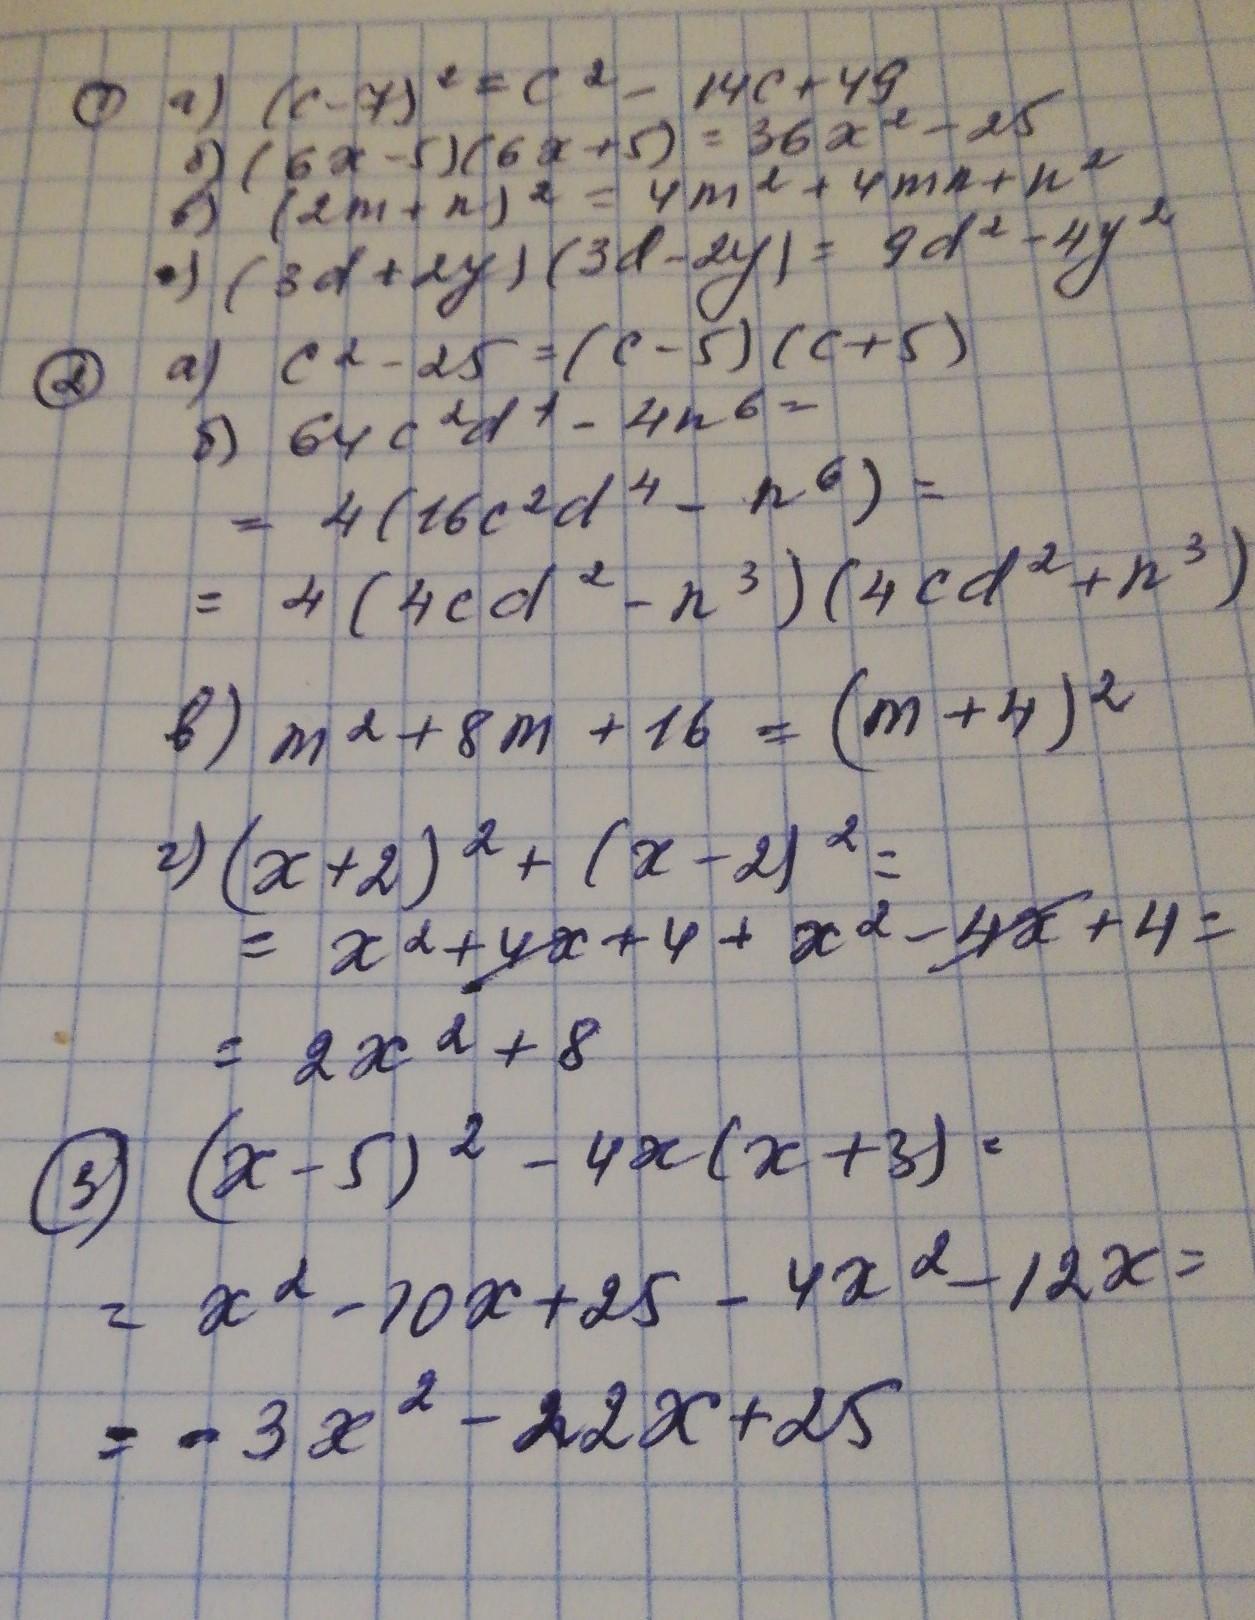 ① а) (c-7)² = c² - 14c + 49
б) (6x-5)(6x+5) = 36x² - 25
в) (2m+n)² = 4m² + 4mn + n²
г) (3d+2y)(3d-2y) = 9d² - 4y²
② а) c² - 25 = (c-5)(c+5)
б) 64c²d⁴ - 4n⁶ =
= 4(16c²d⁴ - n⁶) =
= 4(4cd² - n³)(4cd² + n³)
в) m² + 8m + 16 = (m+4)²
г) (x+2)² + (x-2)² =
= x² + 4x + 4 + x² - 4x + 4 =
= 2x² + 8
③ (x-5)² - 4x(x+3) =
= x² - 10x + 25 - 4x² - 12x =
= -3x² - 22x + 25